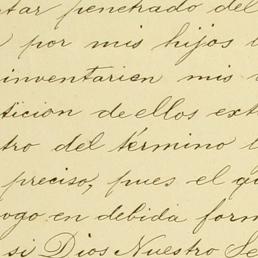 tar penetrado del
por mis hijos
inventarien mis
tición de ellos ext
tro del término
preciso, pues el qu
ogo en debida form
si Dios Nuestro Se